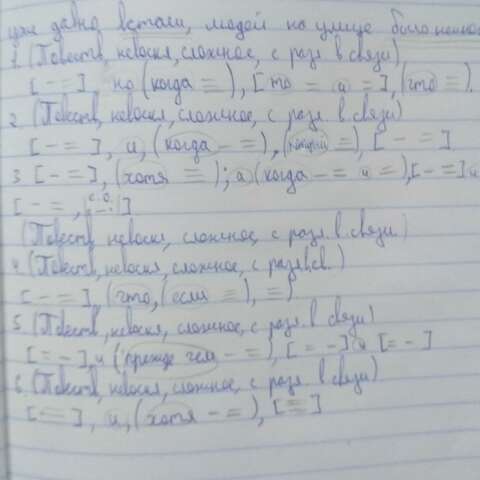 уже давно встали, людей на улице было немног
1. (Повеств, невоскл, сложное, с разл. в. связи)
[ – = ], но (когда = ), [то = и = ], (что = ).
2. (Повеств, невоскл, сложное, с разл. в. связи)
[ – = ], и, (когда – = ), (который = ), [ – = ]
3. [ – = ], (хотя = ); а (когда – = и = ), [ – = ] и
[ – = , |с.о.| ]
(Повеств, невоскл, сложное, с разл. в. связи.)
4. (Повеств, невоскл, сложное, с разл. в. св.)
[ – = ], (что, (если = ), = )
5. (Повеств, невоскл, сложное, с разл. в. связи)
[ = – ], и (прежде чем – = ), [ = – ] и [ = – ]
6. (Повеств, невоскл, сложное, с разл. в. связи).
[ = ], и, (хотя – = ), [ = ]